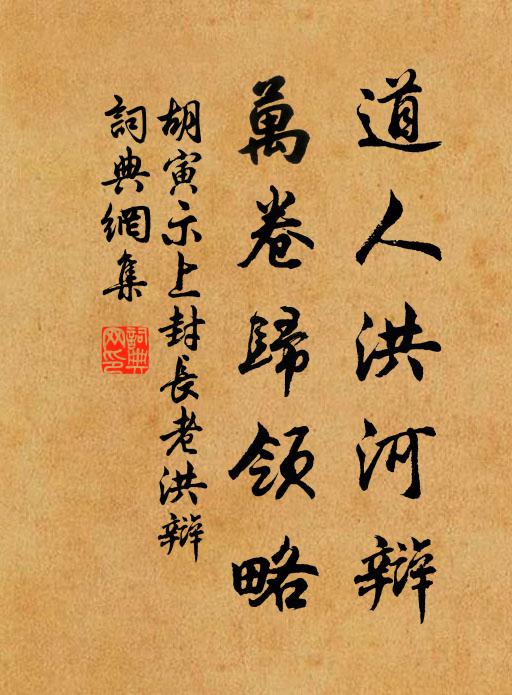 道人洪河辯
萬卷歸領略
胡寅示上封長老洪辯
詞典網集
詞典網印